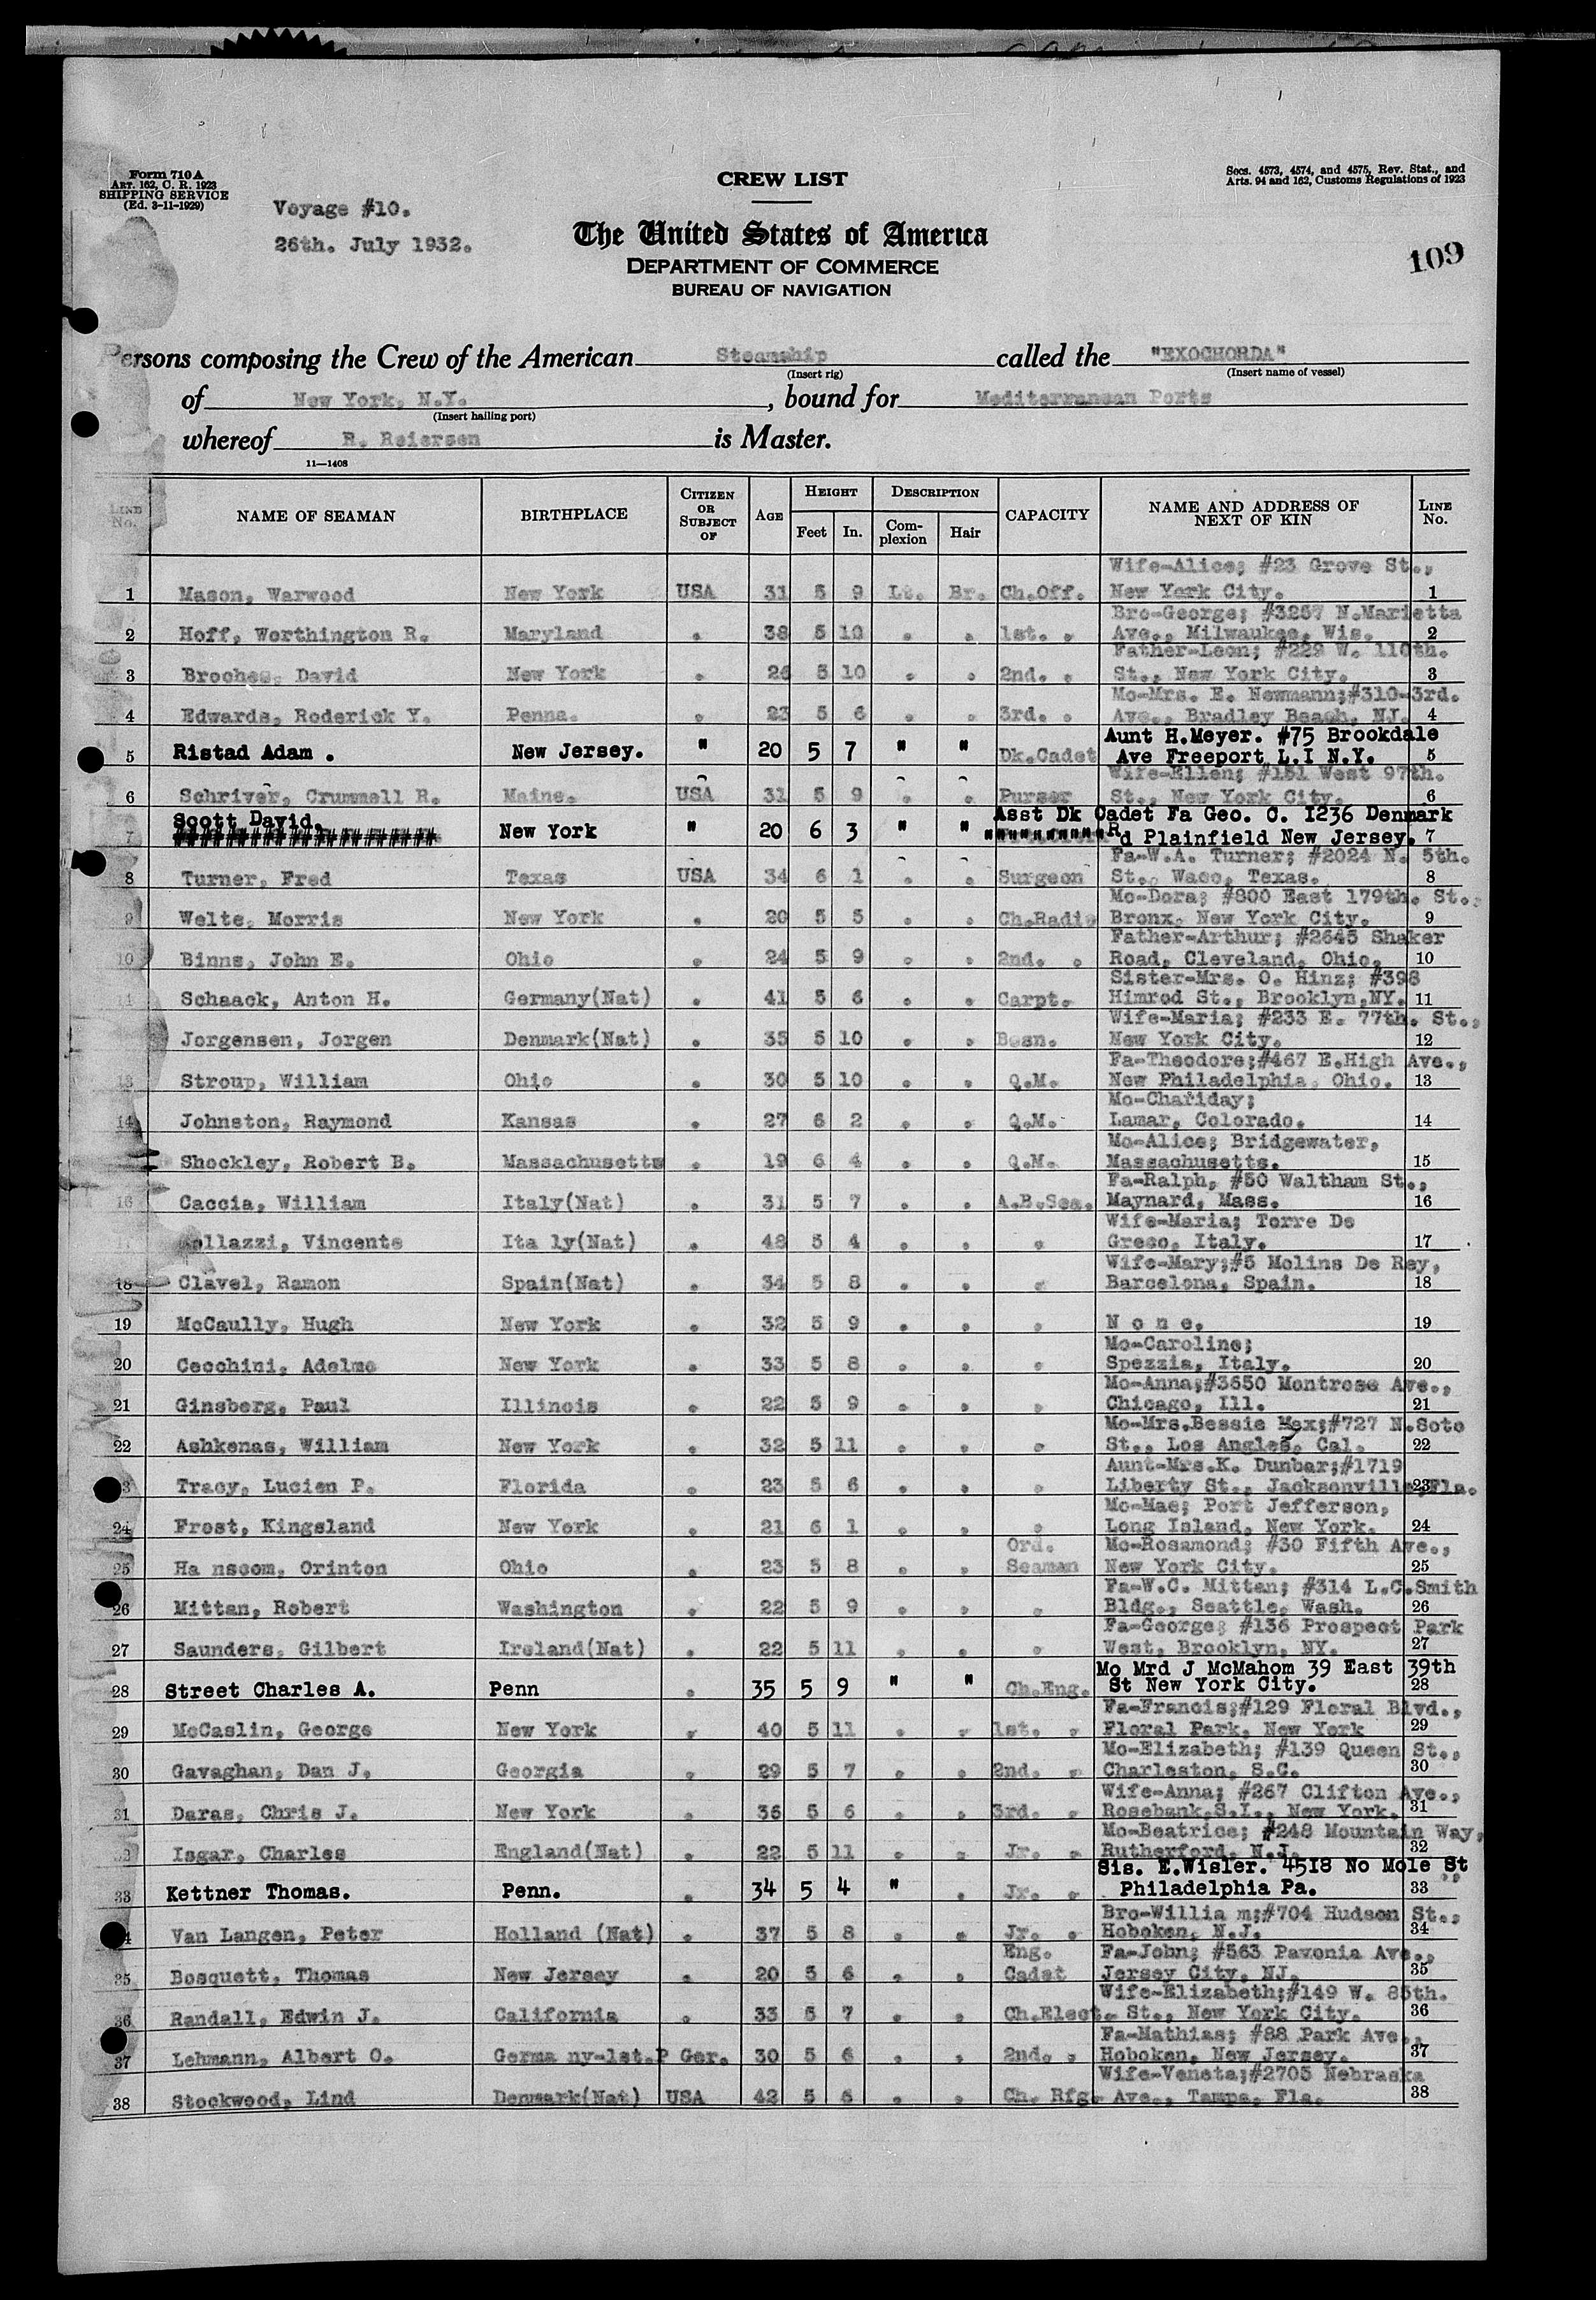 Form 710A
ART. 162, C. R. 1923
SHIPPING SERVICE
(Ed. 3-11-1929)
Voyage #10.
26th. July 1932.
CREW LIST
The United States of America
DEPARTMENT OF COMMERCE
BUREAU OF NAVIGATION
Secs. 4573, 4574, and 4575, Rev. Stat., and
Arts. 94 and 162, Customs Regulations of 1923
109
Persons composing the Crew of the American Steamship called the "EXOCHORDA"
(Insert rig) (Insert name of vessel)
of New York, N.Y., bound for Mediterranean Ports
(Insert hailing port)
whereof R. Reiersen is Master.
11—1408
LINE No. NAME OF SEAMAN BIRTHPLACE CITIZEN OR SUBJECT OF AGE HEIGHT Feet In. DESCRIPTION Complexion Hair CAPACITY NAME AND ADDRESS OF NEXT OF KIN LINE No.
Wife-Alice; #23 Grove St.,
1 Mason, Warwood New York USA 31 5 9 Lt. Br. Ch.Off. New York City. 1
Bro-George; #3257 N.Marietta
2 Hoff, Worthington R. Maryland " 38 5 10 " " 1st. " Ave., Milwaukee, Wis. 2
Father-Leon; #229 W. 110th.
3 Broches, David New York " 26 5 10 " " 2nd. " St., New York City. 3
Mo-Mrs. E. Newmann;#310-3rd.
4 Edwards, Roderick Y. Penna. " 23 5 6 " " 3rd. " Ave., Bradley Beach, NJ. 4
Aunt H.Meyer. #75 Brookdale
5 Ristad Adam . New Jersey. " 20 5 7 " " Dk.Cadet Ave Freeport L.I N.Y. 5
Wife-Ellen; #151 West 97th.
6 Schriver, Crummell R. Maine. USA 31 5 9 " " Purser St., New York City. 6
Scott David. Asst Dk Cadet Fa Geo. C. I236 Denmark
7 New York " 20 6 3 " " Rd Plainfield New Jersey. 7
Fa-W.A. Turner; #2024 N. 5th.
8 Turner, Fred Texas USA 34 6 1 " " Surgeon St., Waco, Texas. 8
Mo-Dora; #800 East 179th. St.,
9 Welte, Morris New York " 20 5 5 " " Ch.Radio Bronx, New York City. 9
Father-Arthur; #2645 Shaker
10 Binns, John E. Ohio " 24 5 9 " " 2nd. " Road, Cleveland, Ohio. 10
Sister-Mrs. O. Hinz; #398
11 Schaack, Anton H. Germany(Nat) " 41 5 6 " " Carpt. Himrod St., Brooklyn,NY. 11
Wife-Maria; #233 E. 77th. St.,
Jorgensen, Jorgen Denmark(Nat) " 35 5 10 " " Bosn. New York City. 12
Fa-Theodore;#467 E.High Ave.,
13 Stroup, William Ohio " 30 5 10 " " Q.M. New Philadelphia, Ohio. 13
Mo-Chafiday;
14 Johnston, Raymond Kansas " 27 6 2 " " Q.M. Lamar, Colorado. 14
Mo-Alice; Bridgewater,
Shockley, Robert B. Massachusetts " 19 6 4 " " Q.M. Massachusetts. 15
Fa-Ralph, #50 Waltham St.,
16 Caccia, William Italy(Nat) " 31 5 7 " " A.B.Sea. Maynard, Mass. 16
Wife-Maria; Torre De
Vincente Ita ly(Nat) " 48 5 4 " " " Greco, Italy. 17
Wife-Mary;#5 Molins De Rey,
18 Clavel, Ramon Spain(Nat) " 34 5 8 " " " Barcelona, Spain. 18
19 McCaully, Hugh New York " 32 5 9 " " " N o n e. 19
Mo-Caroline;
20 Cecchini, Adelmo New York " 33 5 8 " " " Spezzia, Italy. 20
Mo-Anna;#3650 Montrose Ave.,
21 Ginsberg, Paul Illinois " 22 5 9 " " " Chicago, Ill. 21
Mo-Mrs.Bessie Max;#727 N.Soto
22 Ashkenas, William New York " 32 5 11 " " " St., Los Angles, Cal. 22
Aunt-Mrs.K. Dunbar;#1719
23 Tracy, Lucien P. Florida " 23 5 6 " " " Liberty St., Jacksonville,Fla. 23
Mo-Mae; Port Jefferson,
24 Frost, Kingsland New York " 21 6 1 " " " Long Island, New York. 24
Ord. Mo-Rosamond; #30 Fifth Ave.,
25 Ha nscom, Orinton Ohio " 23 5 8 " " Seaman New York City. 25
Fa-W.C. Mittan; #314 L.C.Smith
26 Mittan, Robert Washington " 22 5 9 " " " Bldg., Seattle, Wash. 26
Fa-George; #136 Prospect Park
27 Saunders, Gilbert Ireland(Nat) " 22 5 11 " " " West, Brooklyn, NY. 27
Mo Mrd J McMahom 39 East 39th
28 Street Charles A. Penn " 35 5 9 " " Ch.Eng. St New York City. 28
Fa-Francis;#129 Floral Blvd.,
29 McCaslin, George New York " 40 5 11 " " 1st. " Floral Park, New York 29
Mo-Elizabeth; #139 Queen St.,
30 Gavaghan, Dan J. Georgia " 29 5 7 " " 2nd. " Charleston, S.C. 30
Wife-Anna; #267 Clifton Ave.,
31 Daras, Chris J. New York " 36 5 6 " " 3rd. " Rosebank,S.I., New York. 31
Mo-Beatrice; #248 Mountain Way,
32 Isgar, Charles England(Nat) " 22 5 11 " " Jr. " Rutherford, N.J. 32
Sis. E.Wisler. 4518 No Mole St
33 Kettner Thomas. Penn. " 34 5 4 " " Jr. " Philadelphia Pa. 33
Bro-Willia m;#704 Hudson St.,
34 Van Langen, Peter Holland (Nat) " 37 5 8 " " Jr. " Hoboken, N.J. 34
Eng. Fa-John; #563 Pavonia Ave.,
35 Bosquett, Thomas New Jersey " 20 5 6 " " Cadet Jersey City, NJ. 35
Wife-Elizabeth;#149 W. 85th.
36 Randall, Edwin J. California " 33 5 7 " " Ch.Elect. St., New York City. 36
Fa-Mathias; #88 Park Ave.,
37 Lehmann, Albert O. Germa ny-1st.P Ger. 30 5 6 " " 2nd. " Hoboken, New Jersey. 37
Wife-Veneta;#2705 Nebraska
38 Stockwood, Lind Denmark(Nat) USA 42 5 6 " " Ch. Rfg. Ave., Tampa, Fla. 38